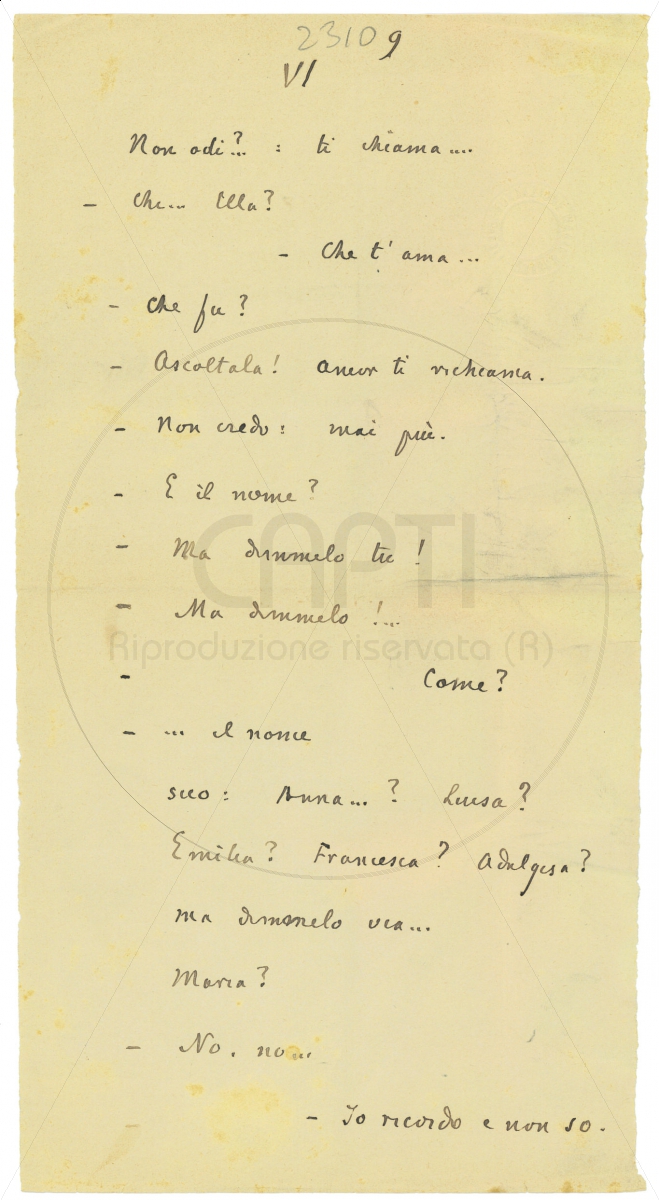 23109
VI
Non odi?.. : ti chiama....
- Che... Ella?
- Che t'ama...
- Che fu?
- Ascoltala! ancor ti richiama.
- Non credo: mai più.
- E il nome?
- Ma dimmelo tu!
- Ma dimmelo!...
- Come?
- ... il nome
suo: Anna...? Luisa?
Emilia? Francesca? Adalgisa?
ma dimmelo via...
Maria?
- No, no...
- Io ricordo e non so.
CAPTI
Riproduzione riservata (R)